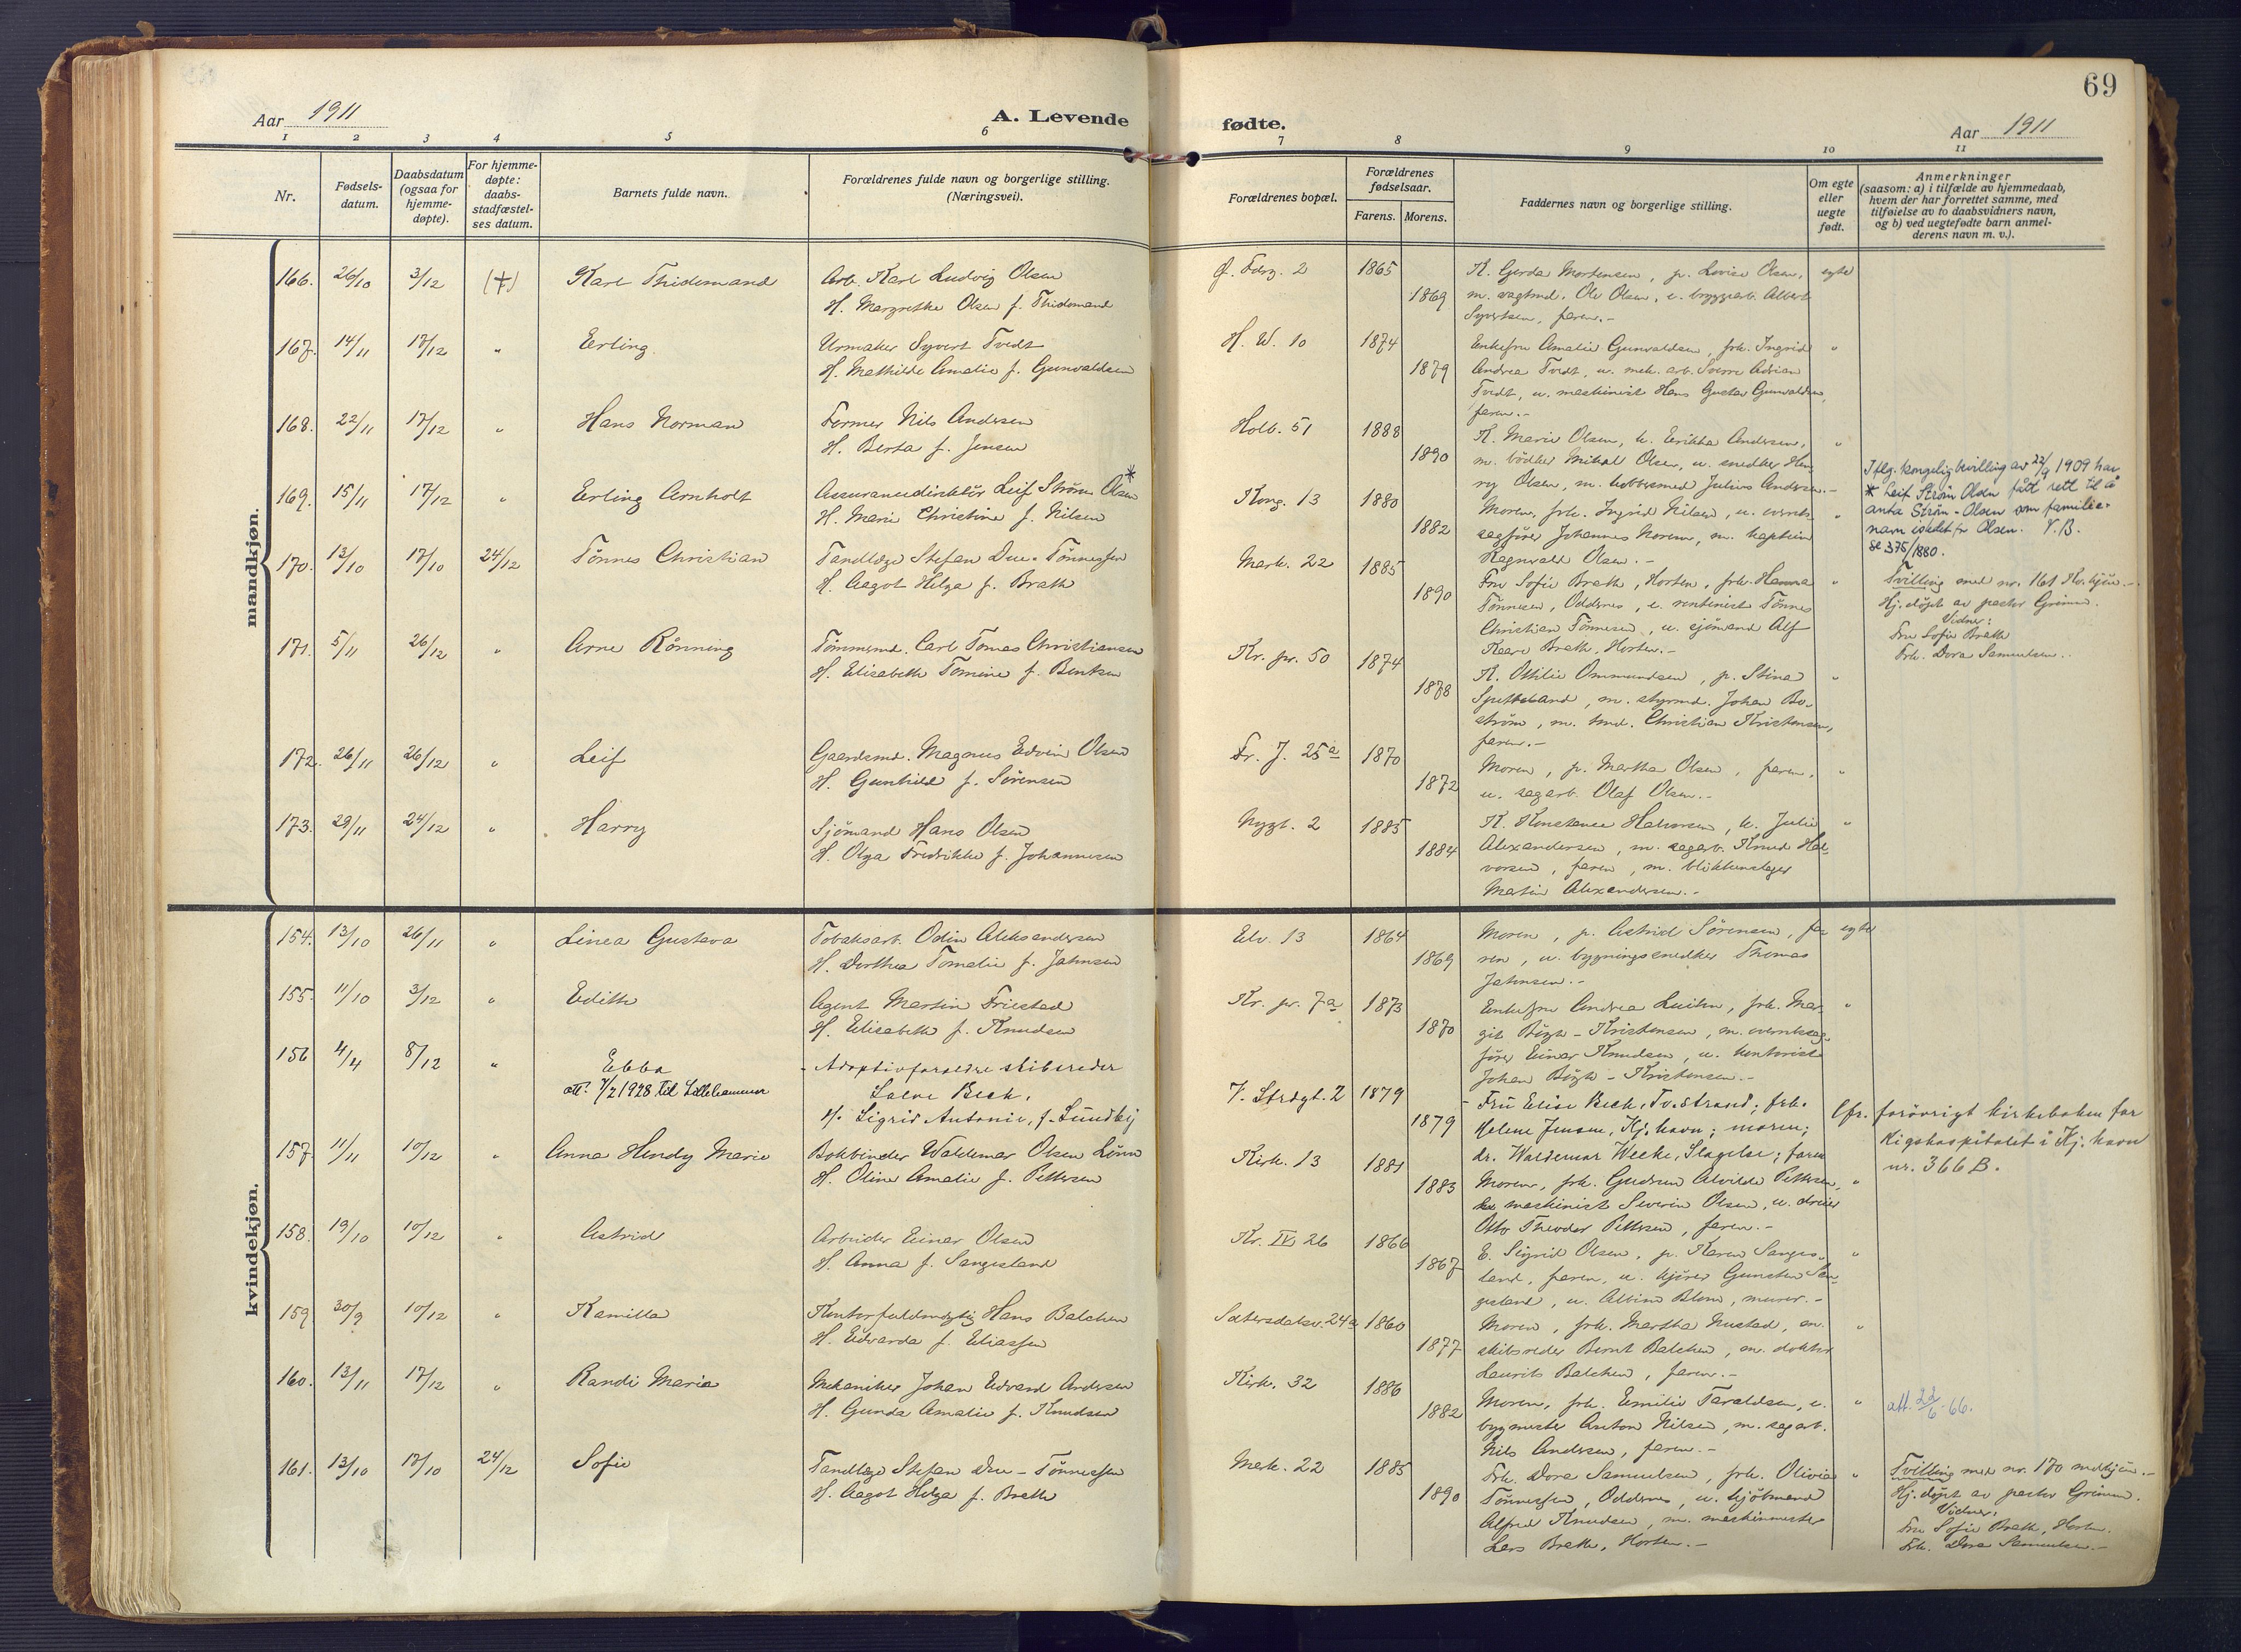 69
Aar 1911
A. Levende
fødte.
Aar 1911
1 2 3 4 5 6 7 8 9 10 11
Nr.
Fødsels-
datum.
Daabsdatum
(ogsaa for
hjemme-
døpte).
For hjemme-
døpte:
daabs-
stadfæstel-
ses datum.
Barnets fulde navn.
Forældrenes fulde navn og borgerlige stilling.
(Næringsvei).
Forældrenes bopæl.
Forældrenes
fødselsaar.
Farens. Morens.
Faddernes navn og borgerlige stilling.
Om egte
eller
uegte
født.
Anmerkninger
(saasom: a) i tilfælde av hjemmedaab,
hvem der har forrettet samme, med
tilføielse av to daabsvidners navn,
og b) ved uegtefødte barn anmel-
derens navn m. v.).
mandkjøn.
166. 26/10 3/12 (+) Karl Thidemand
Arb. Karl Ludvig Olsen
H. Margrethe Olsen f. Thidemand
Ø. Fdrg. 2 1865
1869
K. Gerda Mortensen, p. Lovise Olsen, egte
m. vagtmd. Ole Olsen, u. bryggearb. Albert
Syvertsen, faren.-
167. 14/11 17/12 " Erling
Urmaker Syvert Tvedt
H. Mathilde Amalie f. Gunvaldsen
H. W. 10 1874
1879
Enkefru Amalie Gunvaldsen, frk. Ingrid "
Andrea Tvedt, u. mek. arb. Sverre Adrian
Tvedt, u. maskinist Hans Gustav Gunvaldsen,
faren.-
168. 22/11 17/12 " Hans Norman
Former Nils Andersen
H. Berta f. Jensen
Holb. 51 1888
1890
K. Marie Olsen, k. Erikka Andersen, "
m. bödker Mikal Olsen, u. snedker Hen-
ry Olsen, m. kobbersmed Julius Andersen.-
169. 15/11 17/12 " Erling Arnholt
Assurancedirektör Leif Strøm Olsen *
H. Marie Christine f. Nilsen
Kong. 13 1880
1882
Moren, frk. Ingrid Nilsen, u. overrets- "
sagfører Johannes Noren, m. kaptein
Ragnvald Olsen.-
Iflg. kongelig bevilling av 22/9 1909 har
* Leif Strøm Olsen fått rett til å
anta Strøm-Olsen som familie-
navn istedet for Olsen. V.B.
se 375/1880.
170. 13/10 17/10 24/12 Tönnes Christian
Tandlæge Stefan Due-Tönnessen
H. Aagot Helga f. Brath
Mark. 22 1885
1890
Fru Sofie Brath, Horten, frk. Hanna "
Tönnesen, Oddernes, e. rentenist Tönnes
Christian Tönnesen, u. sjömand Alf
Kaare Brath, Horten.-
Tvilling med nr. 161 Kv.kjön.-
Hj. döpt av pastor Grimm.
Vidner:
Fru Sofie Brath
Frk. Dora Samuelsen..
171. 5/11 26/12 " Arne Rönning
Tömmermd. Carl Tomas Christiansen
H. Elisabeth Tomine f. Bentsen
Kr. pr. 50 1874
1878
K. Ottilie Ommundsen, p. Stina "
, m. styrmd. Johan Bo-
ström, m. tmd. Christian Kristensen,
faren.-
172. 26/11 26/12 " Leif
Gaardsmd. Magnus Edvin Olsen
H. Gunhild f. Sørensen
Fr. J. 25a 1870
1872
Moren, p. Martha Olsen, faren, "
u. sagarb. Olaf Olsen.-
173. 29/11 24/12 " Harry
Sjömand Hans Olsen
H. Olga Fredrikke f. Johannesen
Nygt. 2 1885
1884
K. Konstance Halvorsen, k. Julie "
Alexandersen, m. sagarb. Knud Hal-
vorsen, faren, m. blikkenslager
Martin Alexandersen.-
kvindekjøn.
154. 13/10 26/11 " Linea Gustava
Tobaksarb. Odin Aleksandersen
H. Dorthea Tomalie f. Jahnsen
Elv. 13 1864
1869
Moren, p. Astrid Sörensen, fa- egte
ren, u. bygningssnedker Thomas
Jahnsen.-
155. 11/10 3/12 " Edith
Agent Martin Friestad
H. Elisabeth f. Knudsen
Kr. pr. 7a 1873
1870
Enkefru Andrea , frk. Mar- "
git Bögh-Kristensen, m. overretssag-
fører Einar Knudsen, u. kontorist
Johan Bögh-Kristensen.-
156 4/4 8/12 " Ebba
att. 7/2 1928 til Lillehammer
- Adoptivforældre skibsreder
Salve Bech,
H. Sigrid Antonie, f. Lundbij
V. Strdgt. 2 1879
1879
- Fru Elise Bech, Tv.strand; frk.
Helene Jensen, Kj.havn; moren;
dr. Waldemar Weeke, Slagelse; faren
Cfr. forövrigt kirkeboken for
Rigshospitalet i Kj.havn
nr. 366B.
157. 11/11 10/12 " Anna Hendy Marie
Bokbinder Waldemar Olsen Lönn
H. Oline Amalie f. Pettersen
Kirk. 13 1881
1883
Moren, frk. Gudrun Alvilde Pettersen, "
maskinist Severin Olsen, u. dreier
Otto Theodor Pettersen, faren.-
158. 19/10 10/12 " Astrid
Arbeider Einar Olsen
H. Anna f. Sangesland
Kr. IV. 26 1866
1867
E. Sigrid Olsen, p. Karen Sanges- "
land, faren, u. kjörer Gunsten San-
gesland, u. Albin Blom, murer.-
159 30/9 10/12 " Kamilla
Kontorfuldmægtig Hans Balchen
H. Edvarda f. Eliassen
Sætersdalsv. 24a 1860
1877
Moren, frk. Martha Nustad, en. "
skibsreder Bernt Balchen, m. doktor
Laurits Balchen, faren.-
160. 13/11 17/12 " Randi Marie
Mekaniker Johan Edvard Andersen
H. Gunda Amalie f. Knudsen
Kirk. 32 1886
1882
Moren, frk. Emilie Taraldsen, u. "
bygmester Anton Nilsen, m. sagarb.
Nils Andersen, faren.-
att. 22/6-66.
161. 13/10 17/10 24/12 Sofie
Tandlæge Stefan Due-Tönnessen
H. Aagot Helga f. Brath
Mark. 22 1885
1890
Frk. Dora Samuelsen, frk. Olivia "
Tönnessen, Oddernes, u. kjöbmand
Alfred Knudsen, m. maskinmester
Lars Brath, Horten.-
Tvilling med nr. 170 mdkjön.-
Hj. döpt av pastor Grimm.
Vidner:
Fru Sofie Brath, Horten.
Frk. Dora Samuelsen.-